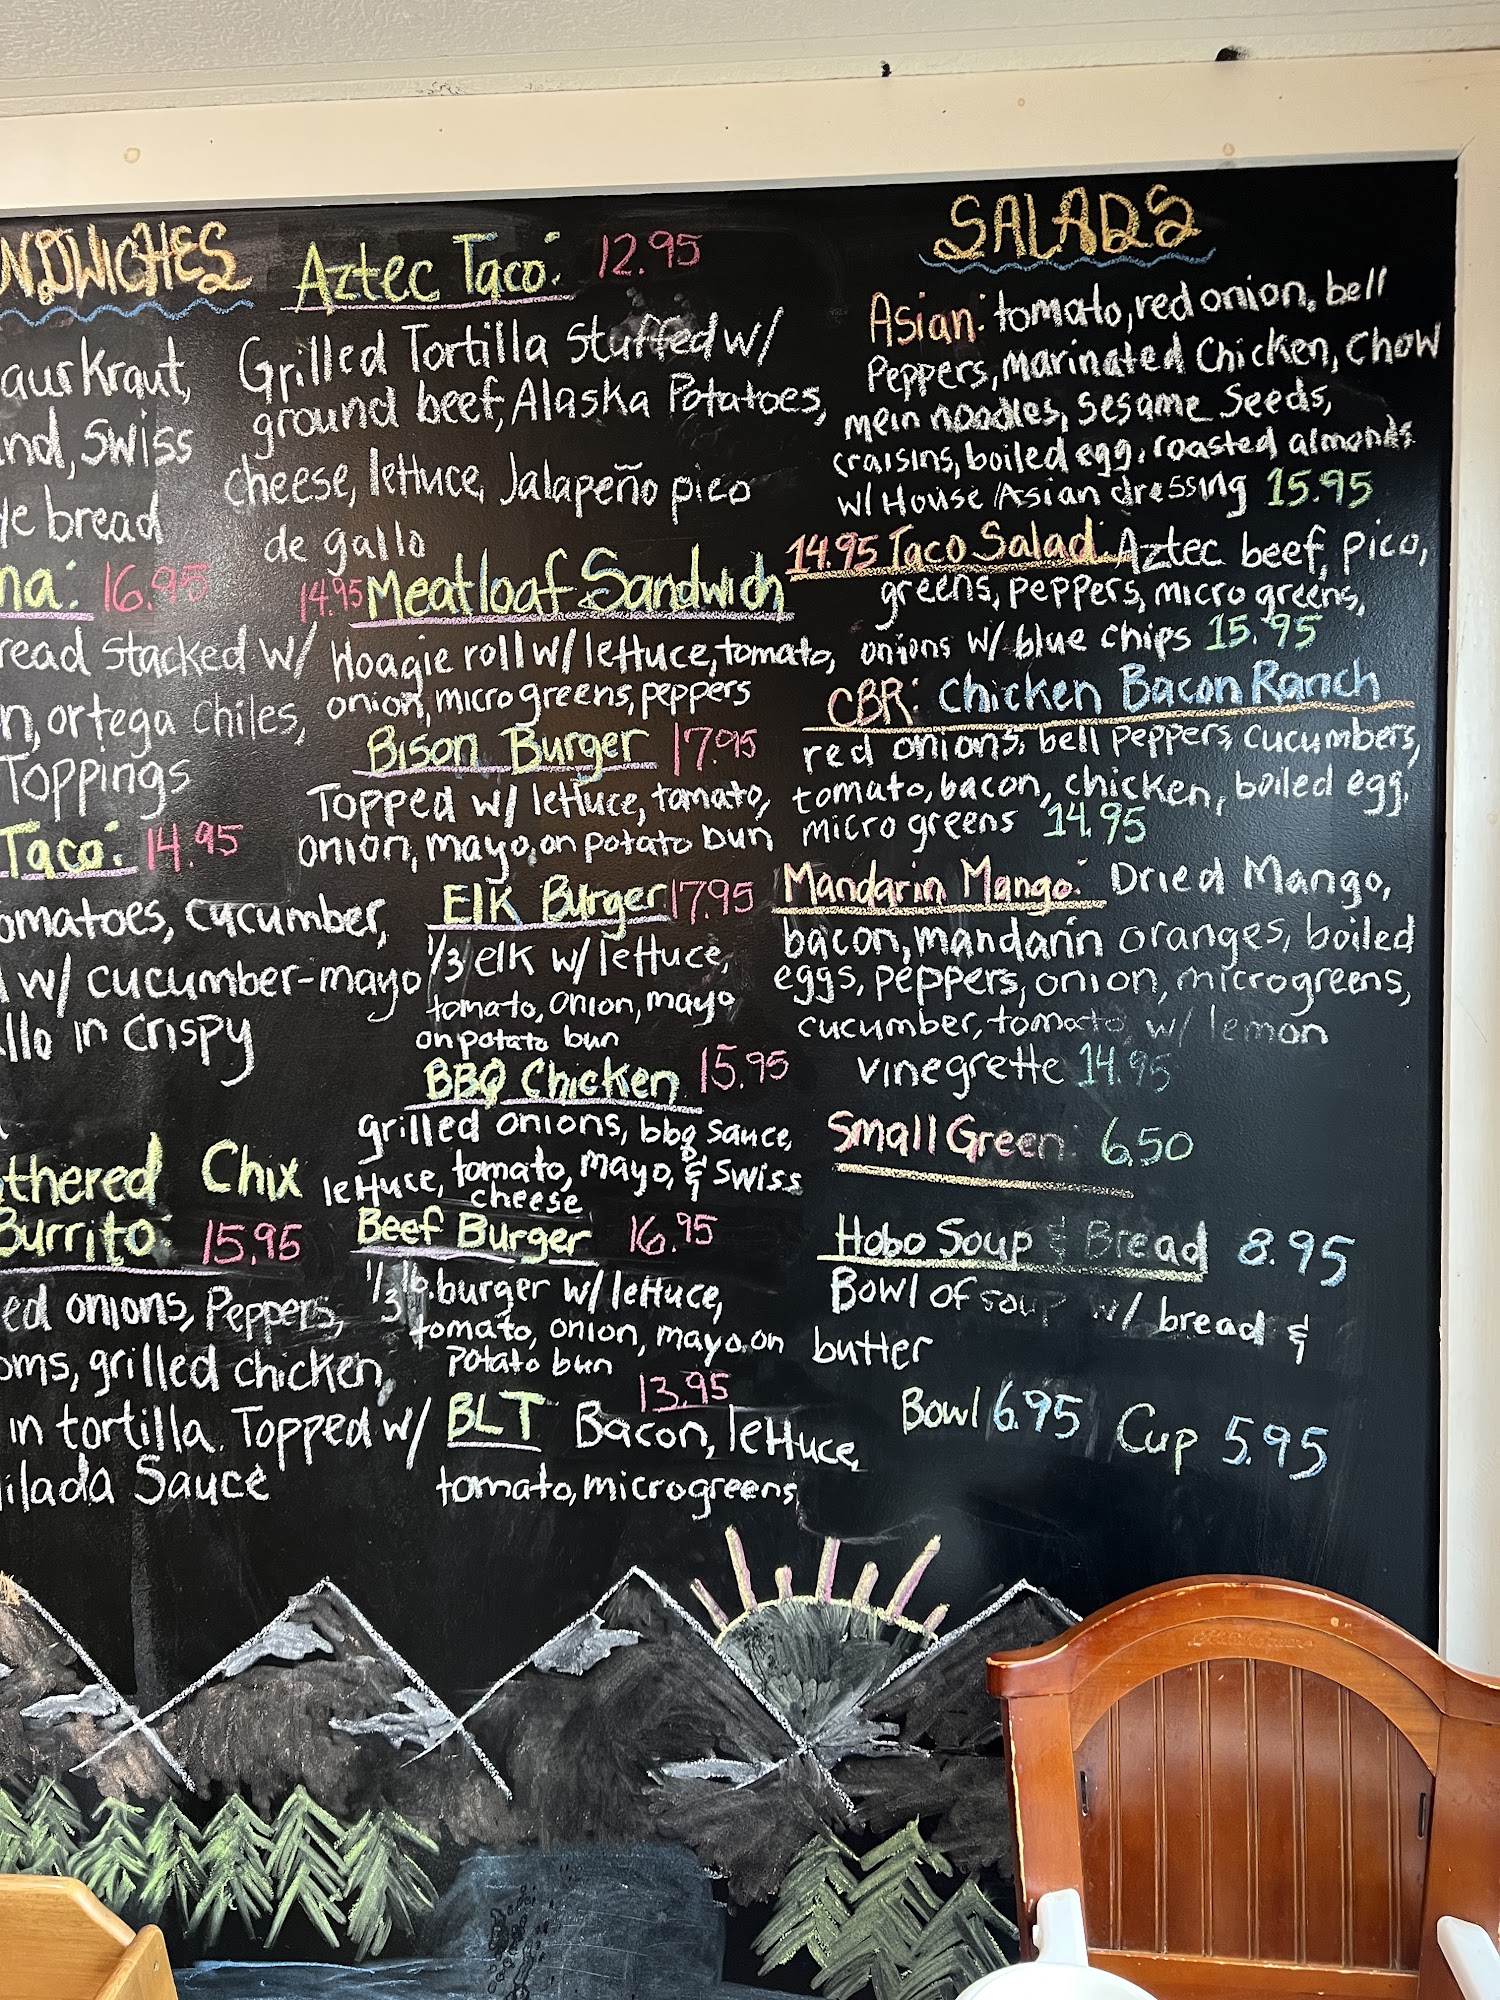 NDWICHES
aurKraut,
nd, Swiss
ye bread
na: 16.95
read stacked w/
n, ortega chiles,
Toppings
Taco: 14.95
omatoes, cucumber,
w/ cucumber-mayo
llo in crispy
thered Chix
Burrito: 15.95
ed onions, Peppers,
oms, grilled chicken,
in tortilla. Topped w/
ilada Sauce
Aztec Taco: 12.95
Grilled Tortilla stuffed w/
ground beef, Alaska Potatoes,
cheese, lettuce, Jalapeño pico
de gallo
14.95 Meatloaf Sandwich
Hoagie roll w/ lettuce, tomato,
onion, micro greens, peppers
Bison Burger 17.95
Topped w/ lettuce, tomato,
onion, mayo, on potato bun
Elk Burger 17.95
1/3 elk w/ lettuce,
tomato, onion, mayo
on potato bun
BBQ Chicken 15.95
grilled onions, bbq sauce,
lettuce, tomato, mayo, & swiss
cheese
Beef Burger 16.95
1/3 lb. burger w/ lettuce,
tomato, onion, mayo, on
potato bun
13.95
BLT Bacon, lettuce,
tomato, microgreens,
SALADS
Asian: tomato, red onion, bell
Peppers, marinated Chicken, Chow
mein noodles, sesame seeds,
craisins, boiled egg, roasted almonds
w/ House Asian dressing 15.95
14.95 Taco Salad: Aztec beef, pico,
greens, peppers, micro greens,
onions w/ blue chips 15.95
CBR: Chicken Bacon Ranch
red onions, bell peppers, cucumbers,
tomato, bacon, chicken, boiled egg,
micro greens 14.95
Mandarin Mango: Dried Mango,
bacon, mandarin oranges, boiled
eggs, peppers, onion, microgreens,
cucumber, tomato, w/ lemon
vinegrette 14.95
Small Green: 6.50
Hobo Soup & Bread 8.95
Bowl of soup w/ bread &
butter
Bowl 6.95 Cup 5.95